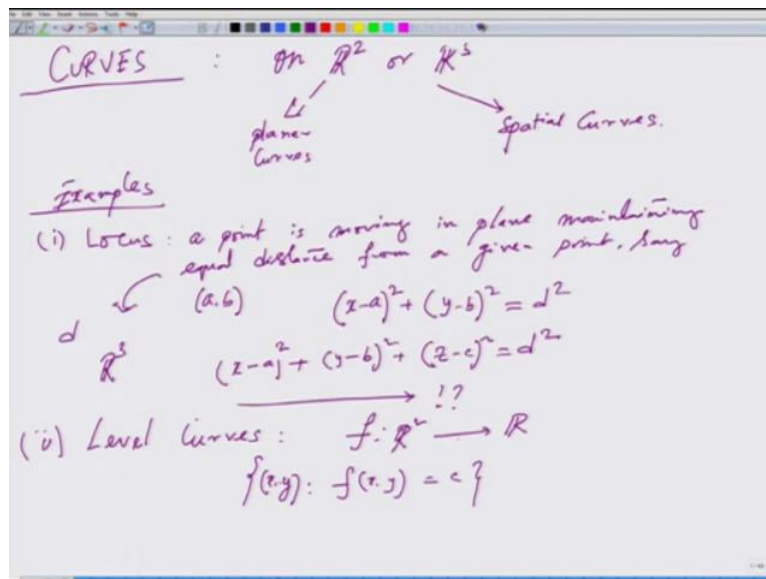 CURVES : on ℝ² or ℝ³
plane curves
Spatial Curves.
Examples
(i) Locus : a point is moving in plane maintaining
equal distance from a given point, say
d (a,b) (x-a)² + (y-b)² = d²
ℝ³ (x-a)² + (y-b)² + (z-c)² = d²
!?
(ii) Level Curves : f: ℝ² → ℝ
{(x,y): f(x,y) = c}